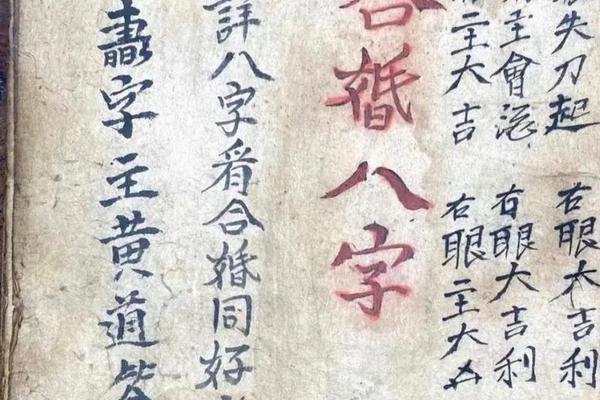 失刀起 右眼木吉利
主會 右眼大吉利
二主大吉 右眼二主大
合婚八字
詳八字看合婚同好
字主黄道